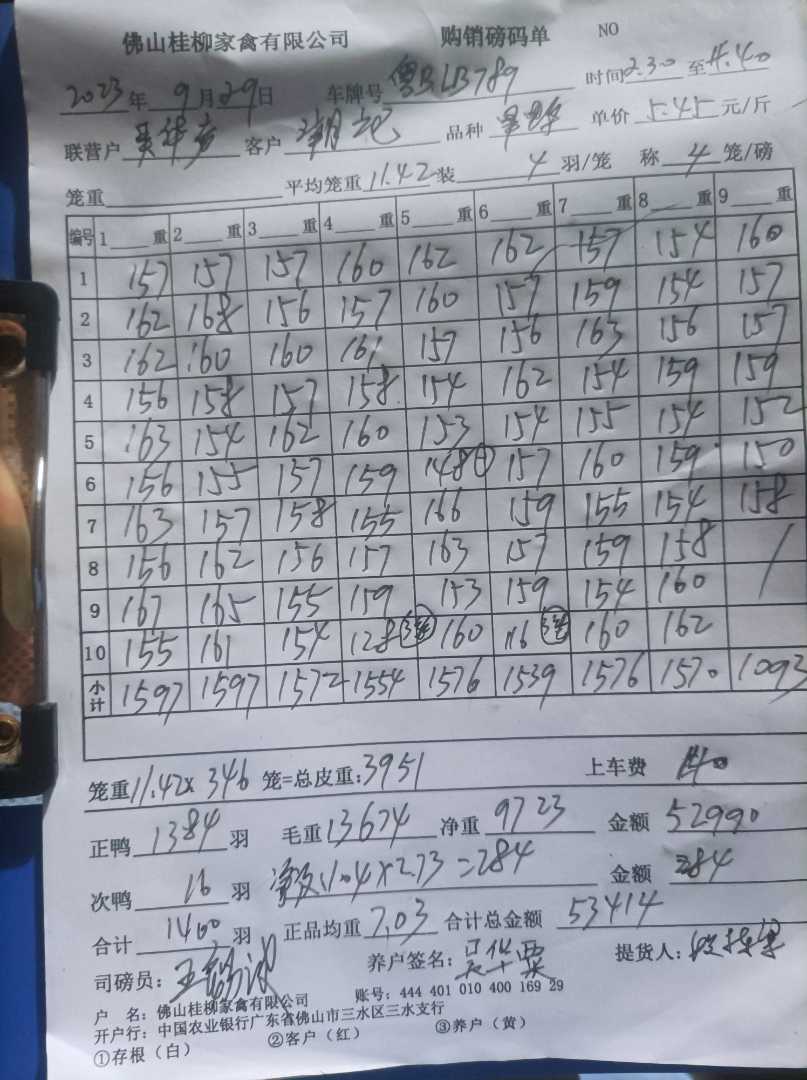 佛山桂柳家禽有限公司 购销磅码单 NO
2023年 9月29日 车牌号 粤BLB789 时间2.30至4.40
联营户 客户 品种 单价 5.45 元/斤
笼重 平均笼重11.42装 4 羽/笼 称 4 笼/磅
编号 1 重 2 重 3 重 4 重 5 重 6 重 7 重 8 重 9 重
1 157 157 157 160 162 162 157 154 160
2 162 168 156 157 160 157 159 154 157
3 162 160 160 161 157 156 163 156 157
4 156 158 157 158 154 162 154 159 159
5 163 154 162 160 153 154 155 154 152
6 156 155 157 159 148 157 160 159 150
7 163 157 158 155 166 159 155 154 158
8 156 162 156 157 163 157 159 158
9 167 165 155 159 153 159 154 160
10 155 161 154 128 160 116 160 162
小计 1597 1597 1572 1554 1576 1539 1576 1570 1093
笼重11.42× 346 笼=总皮重:3951 上车费 140
正鸭 1384 羽 毛重 13674 净重 9723 金额 52990
次鸭 16 羽 11.04×2.73=284 金额 284
合计 1400 羽 正品均重 7.03 合计总金额 53414
司磅员: 养户签名: 提货人:
户 名: 佛山桂柳家禽有限公司 账号: 444 401 010 400 169 29
开户行: 中国农业银行广东省佛山市三水区三水支行
①存根（白） ②客户（红） ③养户（黄）